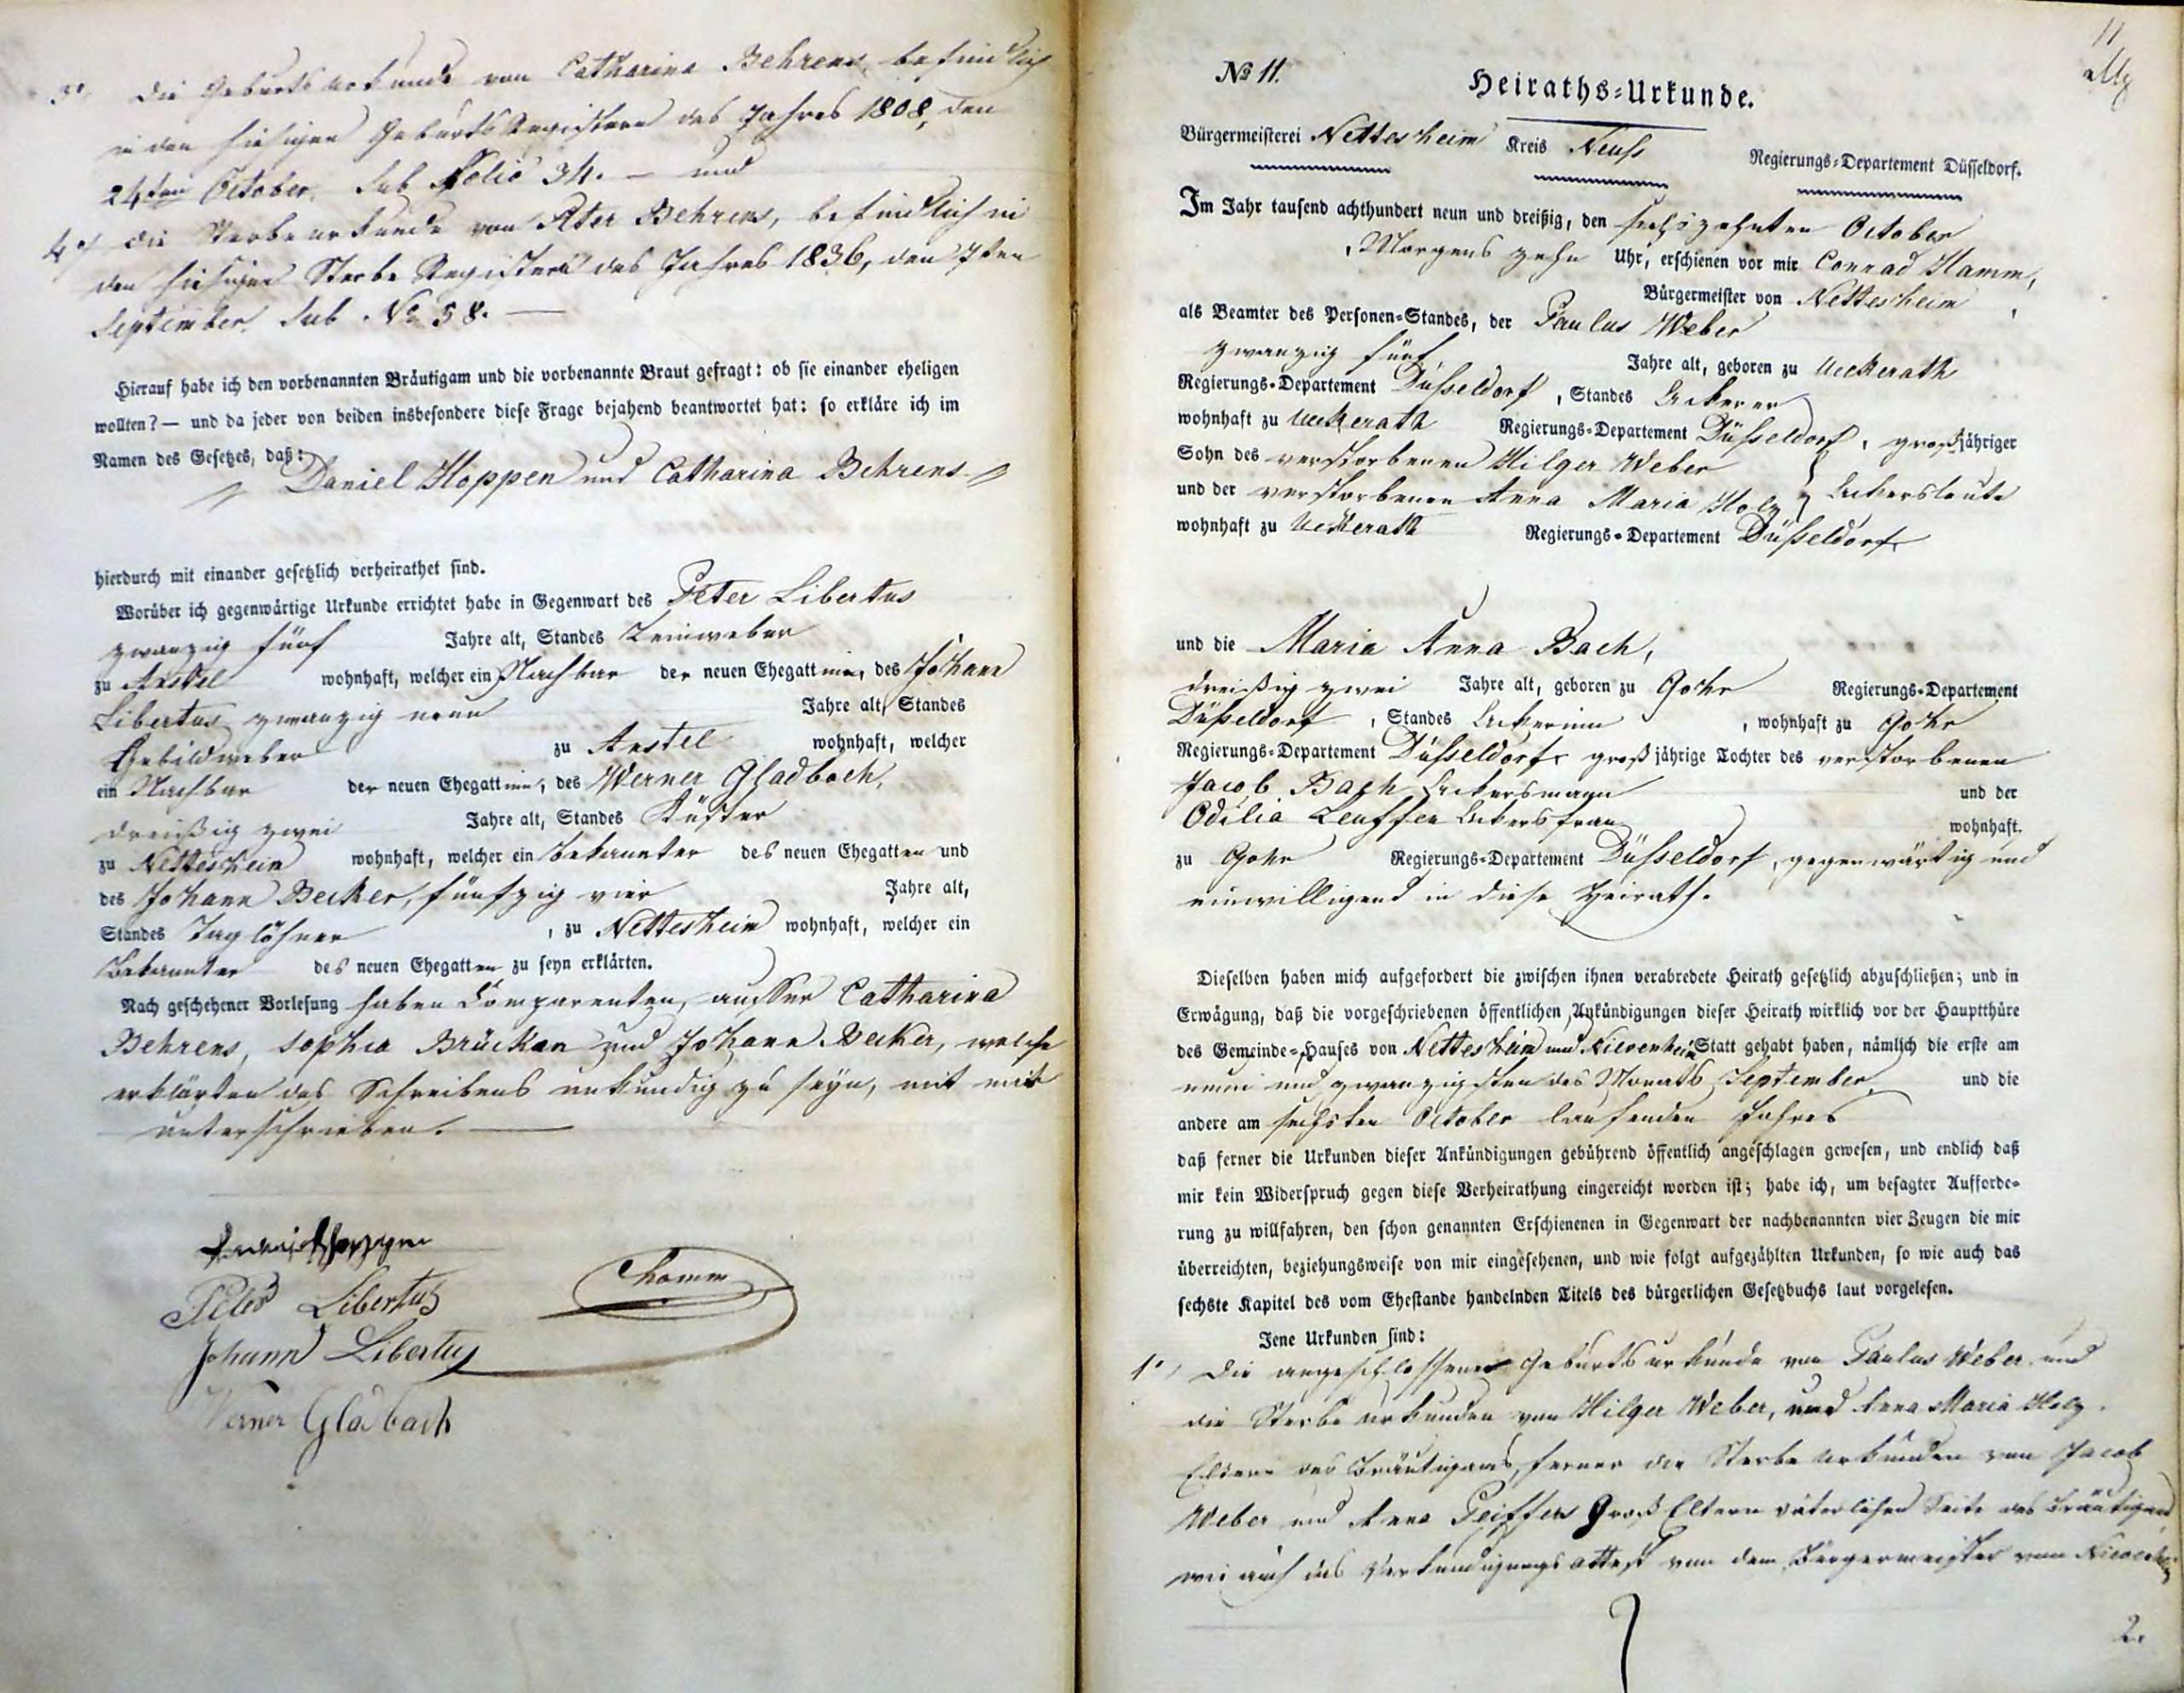 3º, die Geburts urkunde von Catharina Behrens, befindlich
in den hiesigen Geburts Registern des Jahres 1808, den
24ten October, sub Folio 34. — und
4º, die Sterbe urkunde von Peter Behrens, befindlich in
den hiesigen Sterbe Registern des Jahres 1836, den 7ten
September, sub No 58. —
Hierauf habe ich den vorbenannten Bräutigam und die vorbenannte Braut gefragt: ob sie einander eheligen
wollten? — und da jeder von beiden insbesondere diese Frage bejahend beantwortet hat: so erkläre ich im
Namen des Gesetzes, daß:
Daniel Hoppen und Catharina Behrens
hierdurch mit einander gesetzlich verheirathet sind.
Worüber ich gegenwärtige Urkunde errichtet habe in Gegenwart des Peter Libertus
zwanzig fünf Jahre alt, Standes Leinweber
zu Anstel wohnhaft, welcher ein Nachbar der neuen Ehegattinn, des Johann
Libertus zwanzig neun Jahre alt, Standes
Gebildweber zu Anstel wohnhaft, welcher
ein Nachbar der neuen Ehegattinn, des Werner Gladbach,
dreißig zwei Jahre alt, Standes Küster
zu Nettesheim wohnhaft, welcher ein Bekannter des neuen Ehegatten und
des Johann Becker, fünfzig vier Jahre alt,
Standes Taglöhner, zu Nettesheim wohnhaft, welcher ein
Bekannter des neuen Ehegatten zu seyn erklärten.
Nach geschehener Vorlesung haben Comparenten, ausser Catharina
Behrens, Sophia Brücken und Johann Becker, welche
erklärten das Schreibens unkundig zu seyn, mit mir
unterschrieben. —
Peter Libertus
Johann Libertus
Werner Gladbach
No 11.
11
Heiraths-Urkunde.
Bürgermeisterei Nettesheim Kreis Neuss Regierungs-Departement Düsseldorf.
Im Jahr tausend achthundert neun und dreißig, den sechszehnten October
Morgens zehn Uhr, erschienen vor mir Conrad Hamm,
Bürgermeister von Nettesheim,
als Beamter des Personen-Standes, der Paulus Weber
zwanzig fünf Jahre alt, geboren zu Ueckerath
Regierungs-Departement Düsseldorf, Standes Ackerer
wohnhaft zu Ueckerath Regierungs-Departement Düsseldorf, großjähriger
Sohn des verstorbenen Hilger Weber
und der verstorbenen Anna Maria Holz } Ackersleute
wohnhaft zu Ueckerath Regierungs-Departement Düsseldorf,
und die Maria Anna Bach,
dreißig zwei Jahre alt, geboren zu Gohr Regierungs-Departement
Düsseldorf, Standes Ackerinn, wohnhaft zu Gohr
Regierungs-Departement Düsseldorf, großjährige Tochter des verstorbenen
Jacob Bach Ackersmann und der
Odilia Leuffen Ackersfrau wohnhaft.
zu Gohr Regierungs-Departement Düsseldorf, gegenwärtig und
einwilligend in diese Heirath.
Dieselben haben mich aufgefordert die zwischen ihnen verabredete Heirath gesetzlich abzuschließen; und in
Erwägung, daß die vorgeschriebenen öffentlichen Ankündigungen dieser Heirath wirklich vor der Hauptthüre
des Gemeinde-Hauses von Nettesheim und Nievenheim Statt gehabt haben, nämlich die erste am
neun und zwanzigsten des Monats September, und die
andere am sechsten October laufenden Jahres
daß ferner die Urkunden dieser Ankündigungen gebührend öffentlich angeschlagen gewesen, und endlich daß
mir kein Widerspruch gegen diese Verheirathung eingereicht worden ist; habe ich, um besagter Aufforde-
rung zu willfahren, den schon genannten Erschienenen in Gegenwart der nachbenannten vier Zeugen die mir
überreichten, beziehungsweise von mir eingesehenen, und wie folgt aufgezählten Urkunden, so wie auch das
sechste Kapitel des vom Ehestande handelnden Titels des bürgerlichen Gesetzbuchs laut vorgelesen.
Jene Urkunden sind:
1º, Die angeschlossene Geburts urkunde von Paulus Weber und
die Sterbe urkunden von Hilger Weber, und Anna Maria Holz,
Eltern des Bräutigams, ferner die Sterbe urkunden von Jacob
Weber und Anna Peiffers Groß Eltern väterlicher Seite des Bräutigams
wie auch das Verkündigungs attest von dem Bürgermeister von Nievenheim
2.